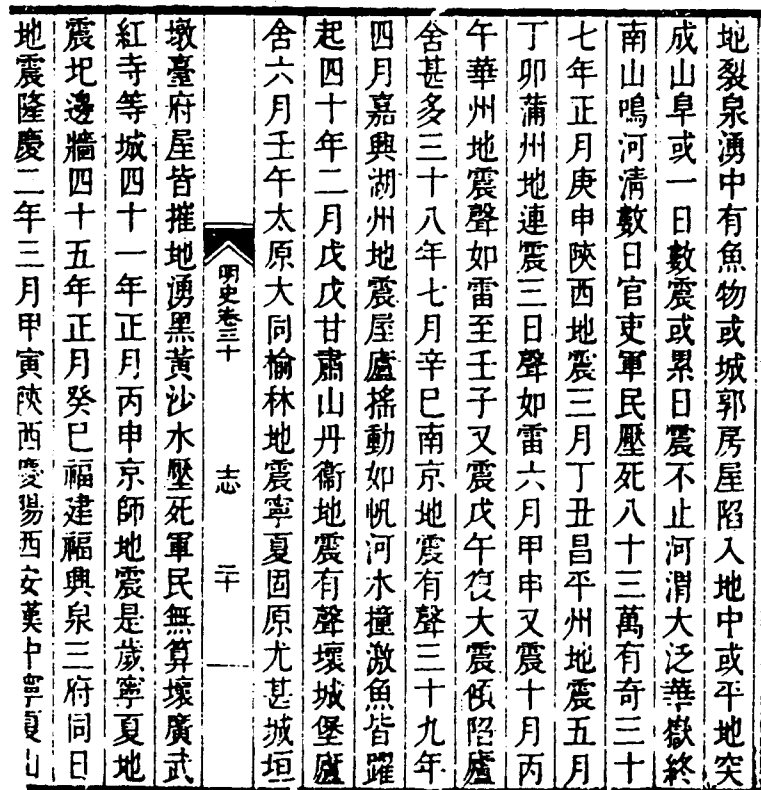 地裂泉湧中有魚物或城郭房屋陷入地中或平地突
成山阜或一日數震或累日震不止河渭大泛華嶽終
南山鳴河清數日官吏軍民壓死八十三萬有奇三十
七年正月庚申陝西地震三月丁丑昌平州地震五月
丁卯蒲州地連震三日聲如雷六月甲申又震十月丙
午華州地震聲如雷至壬子又震戊午復大震傾陷廬
舍甚多三十八年七月辛巳南京地震有聲三十九年
四月嘉興湖州地震屋廬搖動如帆河水撞激魚皆躍
起四十年二月戊戌甘肅山丹衞地震有聲壞城堡廬
舍六月壬午太原大同榆林地震寧夏固原尤甚城垣
明史卷三十 志 二十
墩臺府屋皆摧地湧黑黃沙水壓死軍民無算壞廣武
紅寺等城四十一年正月丙申京師地震是歲寧夏地
震圮邊牆四十五年正月癸巳福建福興泉三府同日
地震隆慶二年三月甲寅陝西慶陽西安漢中寧夏山